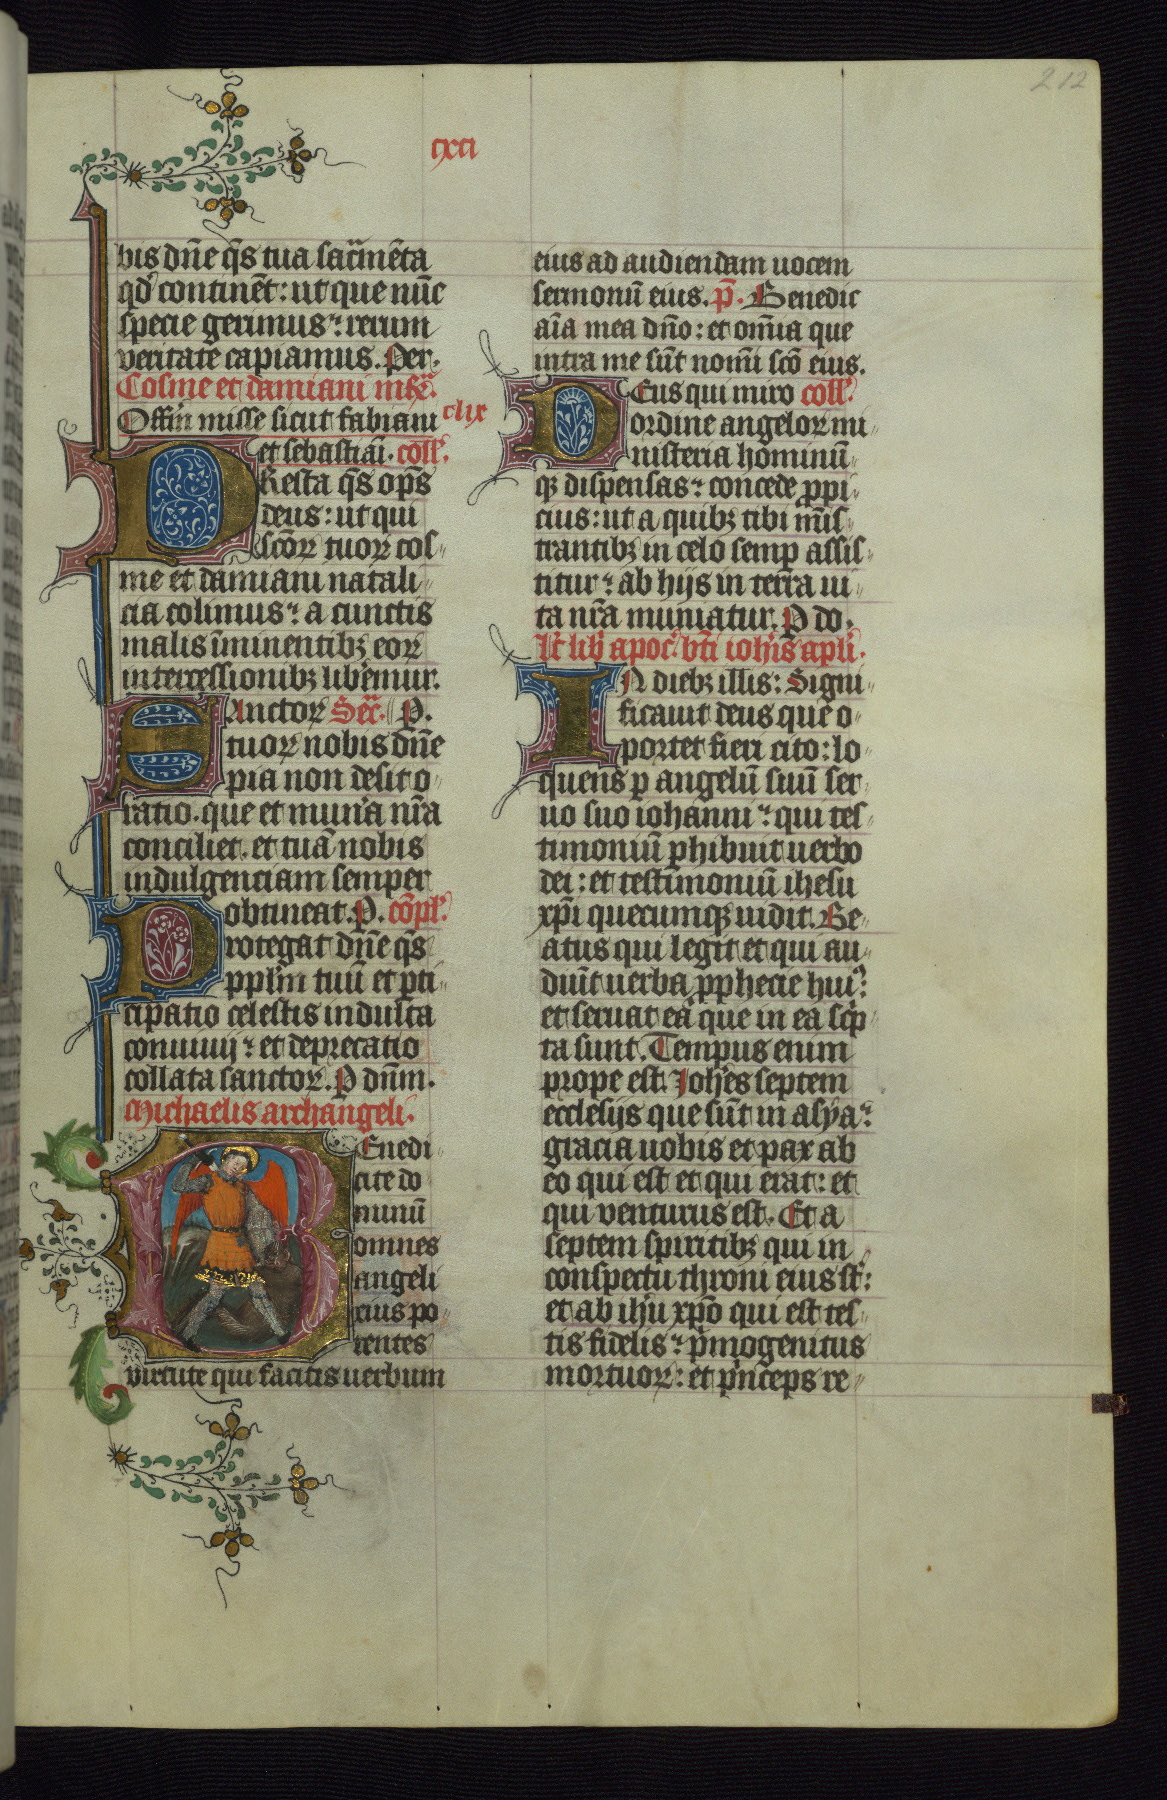 212
cxci
bis dn̄e q̄s tua sac̄mēta
qd̓ continēt: ut que nūc
specie gerimus: rerum
veritate capiamus. Per.
Cosme et damiani mr̄.
Offm̄ misse sicut fabiani clix
et sebastiāi. coll̓.
PResta q̄s op̄s
deus: ut qui
scōꝝ tuoꝝ cos„
me et damiani natali„
cia colimus: a cunctis
malis īminentibꝫ eoꝝ
intercessionibꝫ lib̓emur.
SAnctoꝝ Sec̄. P.
tuoꝝ nobis dn̄e
pia non desit o„
ratio. que et mun̓a nr̄a
conciliet. et tuā nobis
indulgenciam semper
obtineat. P. cōpl̓.
Protegat dn̄e q̄s
pplm̄ tuū et ꝑti„
cipatio celestis indulta
conuiuij: et deprecatio
collata sanctoꝝ. P dn̄m.
Michaelis archangeli.
BEnedi„
cite do
minū
omnes
angeli
eius po„
tentes
virtute qui facitis uerbum
eius ad audiendam uocem
sermonū eius. p̄. Benedic
aīa mea dn̄o: et om̄ia que
intra me sūt nomī scō eius.
DEus qui miro coll̓.
ordine angeloꝝ mi„
nisteria hominū„
qꝫ dispensas: concede ꝓpi„
cius: ut a quibꝫ tibi mīs„
trantibꝫ in celo semꝑ assis„
titur: ab hijs in terra ui„
ta nr̄a muniatur. P do.
Lc̄ lib̓ apoc̓. bt̄i ioh̓is apl̓i.
IN diebꝫ illis: Signi„
ficauit deus que o„
portet fieri cito: lo„
quens ꝑ angelū suū ser„
uo suo iohanni: qui tes„
timoniū ꝑhibuit uerbo
dei: et testimoniū ihesu
xp̄i quecumqꝫ uidit. Be„
atus qui legit et qui au„
diūt uerba ꝓphecie hui̓:
et seruat eā que in ea sc̓p„
ta sunt. Tempus enim
prope est. Ioh̓es septem
ecclesijs que sūt in asya:
gracia uobis et pax ab
eo qui est et qui erat: et
qui venturus est. Et a
septem spiritibꝫ qui in
conspectu throni eius st̄:
et ab ih̓u xp̄o qui est tes„
tis fidelis: p̓mogenitus
mortuoꝝ: et p̓nceps re„